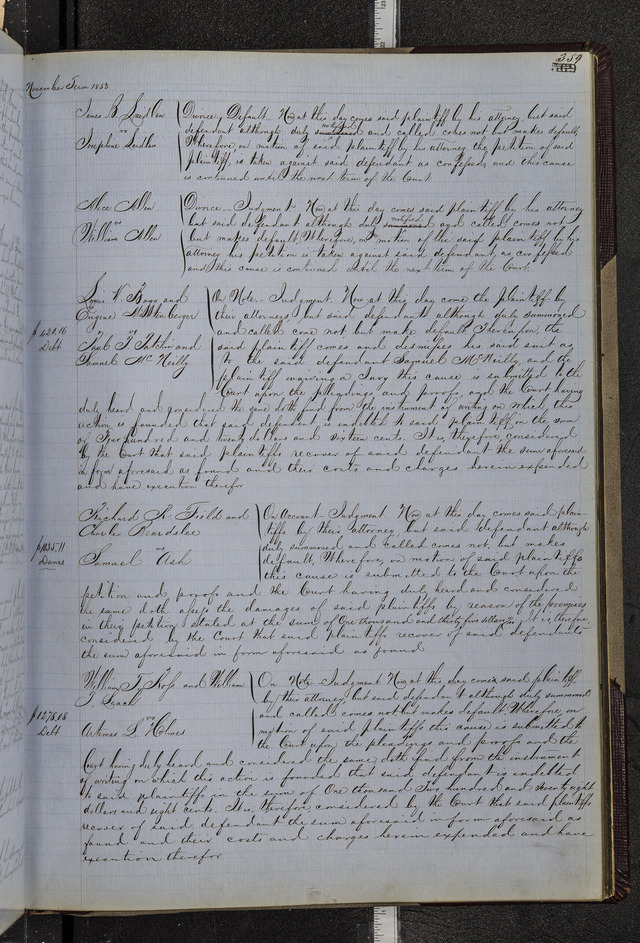 359
November Term 1853
Divorce, Default. Now at this day comes said plaintiff by his attorney but said
notified
vs defendant although duly summoned and called comes not but makes default,
Josephine Therefore, on motion of said plaintiff by his attorney the petition of said
plaintiff is taken against said defendant as confessed, and this cause
is continued until the next term of the Court
Alice Allen Divorce - Judgment - Now at this day comes said plaintiff by his attorney
vs but said defendant although duly notified summoned and called comes not
William Allen but makes default, Wherefore, on motion of the said plaintiff by his
attorney his petition is taken against said defendant, as confessed
and this cause is continued until the next term of the Court.
Louis V. Bogy and On Note - Judgment. Now at this day come the plaintiff by
Eugene their attorneys but said defendants although duly summoned
$420.16 vs and called come not but make default Therefor, the
Debt and said plaintiff comes and dismisses his said suit as
Samuel McNeilly to the said defendant Samuel McNeilly, and the
plaintiff waiving a Jury this cause is submitted to the
Court upon the pleadings and proofs, and the Court having
duly heard and considered the same doth find from the instrument of writing on which this
action is founded that said defendant is indebted to said plaintiff in the sum
of Four hundred and twenty dollars and sixteen cents. It is, therefore, considered
by the Court that said plaintiffs recover of said defendant the sum aforesaid
in form aforesaid as found and their costs and charges herein expended
and have execution therefor
Richard K. Field and On Account - Judgment Now at this day comes said plain-
Charles Beardslee tiffs by their attorney, but said defendant although
$1035.11 vs duly summoned and called comes not, but makes
Damrs Samuel Ash default, Wherefore, on motion of said plaintiffs
this cause is submitted to the Court upon the
petition and proofs and the Court having duly heard and considered
the same doth assess the damages of said plaintiffs by reason of the premises
in their petition stated at the sum of One thousand and thirty five dollars It is therefore
considered by the Court that said plaintiffs recover of said defendant
the sum aforesaid in form aforesaid as found
William T. Ross and William On Note - Judgment Now at this day comes said plaintiff
by their attorney, but said defendant although duly summoned
$1278.08 vs and called comes not but makes default Wherefore, on
Debt Artemas S. Holmes motion of said plaintiffs this cause is submitted to
the Court upon the pleadings and proofs and the
Court having duly heard and considered the same, doth find from the instrument
of writing on which this action is founded that said defendant is indebted
to said plaintiff in the sum of One thousand Two hundred and seventy eight
dollars and eight cents. It is, therefore considered by the Court that said plaintiffs
recover of said defendant the sum aforesaid in form aforesaid as
found and their costs and charges herein expended and have
execution therefor